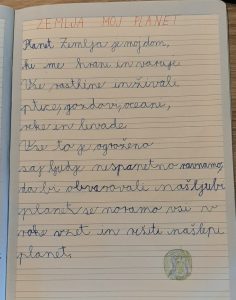 ZEMLJA MOJ PLANET
Planet Zemlja je moj dom,
ki me hrani in varuje
Vse rastline in živali
ptice, gozdovi, oceani,
reke in livade.
Vse to je ogroženo
saj ljudje nespametno ravnamo,
da bi obvarovali naš ljubi
planet se moramo vsi v
roke vzet in rešiti naš lepi
planet.